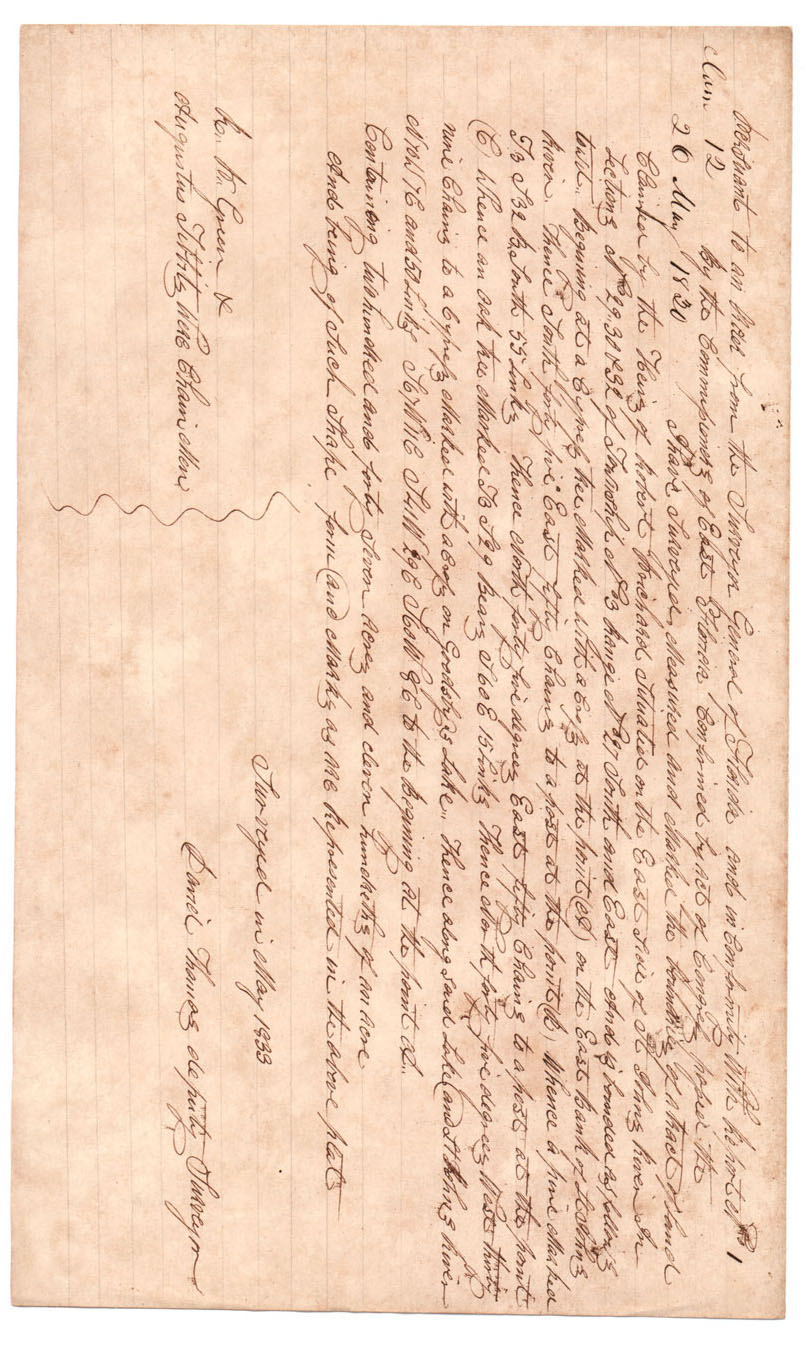 Persuant to an Order from the Surveyor General of Florida and in Conformity With Report No 1
Claim 12 By the Commissioners of East Florida Confirmed by act of Congress proper the
26 May 1830 I have Surveyed, Measured and Marked the boundries of a tract of land
Claimed by the Heirs of Robert Prichard Situated on the East Side of St Johns River In
Sections No 29. 30 & 32 of Township No 13 Range No 27 South and East and is bounded as follows
towit. Begining at a Cypress tree Marked with a Cross at the point (A) on the East Bank of St Johns
River. Thence South forty five East fifty Chains to a post at the point (B) Whence a pine Marked
To S 32 B South 55 Links Thence North forty five degrees East fifty Chains to a post at the point
(C whence an oak tree Marked To S 29 Bears S 60 E 15 Links Thence North forty five degrees West thirty
nine Chains to a Cypress Marked with a Cross on Lake.. Thence along said Lake (and St Johns River
and 50 Links to the Begining at the point A..
Containing two hundred and forty Seven acres and eleven hundreths of an acre
And being of Such Shape form (and Marks as are Represented in the above plat
Surveyed in May 1833
R. W. Green &
Augustus were Chain Men
David Thomas deputy Surveyor